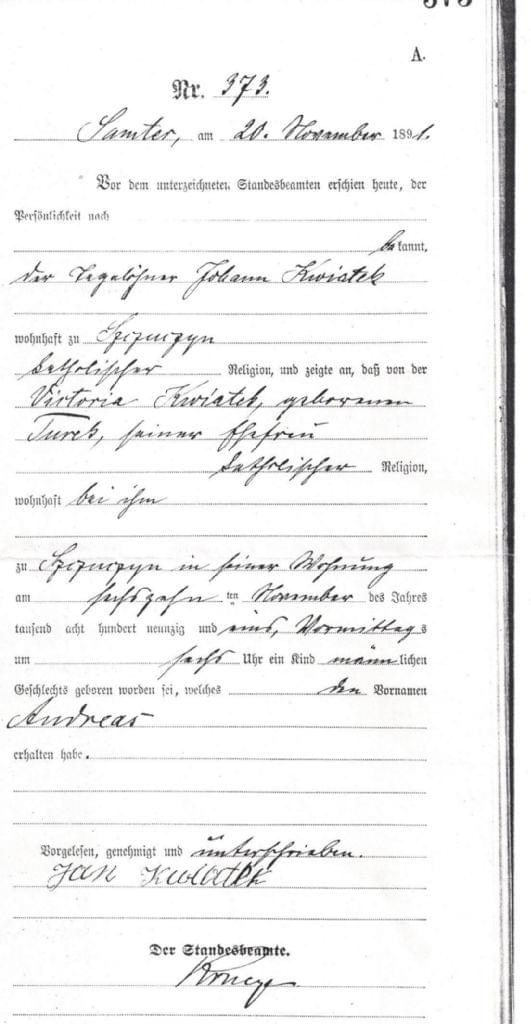 373
A.
Nr. 373.
Samter, am 20. November 1891.
Vor dem unterzeichneten Standesbeamten erschien heute, der
Persönlichkeit nach
bekannt,
der Tagelöhner Johann Kwiatek
wohnhaft zu
katholischer Religion, und zeigte an, daß von der
Victoria Kwiatek, geborenen
Turek, seiner Ehefrau
katholischer Religion,
wohnhaft bei ihm
zu in seiner Wohnung
am sechszehn ten November des Jahres
tausend acht hundert neunzig und eins, Vormittags
um sechs Uhr ein Kind männlichen
Geschlechts geboren worden sei, welches den Vornamen
Andreas
erhalten habe.
Vorgelesen, genehmigt und unterschrieben.
Jan Kwiatek
Der Standesbeamte.